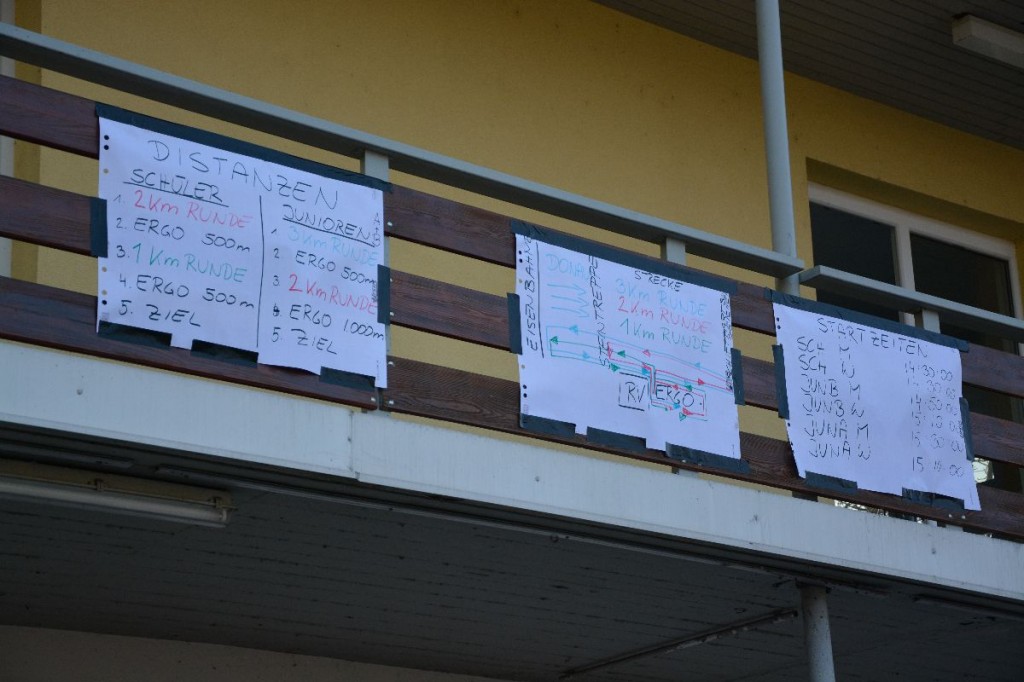 DISTANZEN
SCHÜLER
1. 2Km RUNDE
2. ERGO 500m
3. 1 Km RUNDE
4. ERGO 500m
5. ZIEL
JUNIOREN
1. 3Km RUNDE
2. ERGO 500m
3. 2 Km RUNDE
4. ERGO 1000m
5. ZIEL
EISENBAHN
DONAU
STRECKE
3Km RUNDE
2Km RUNDE
1Km RUNDE
RV
ERGO
STARTZEITEN
SCH M 14:30:00
SCH W
JUNB M
JUNB W
JUNA M
JUNA W